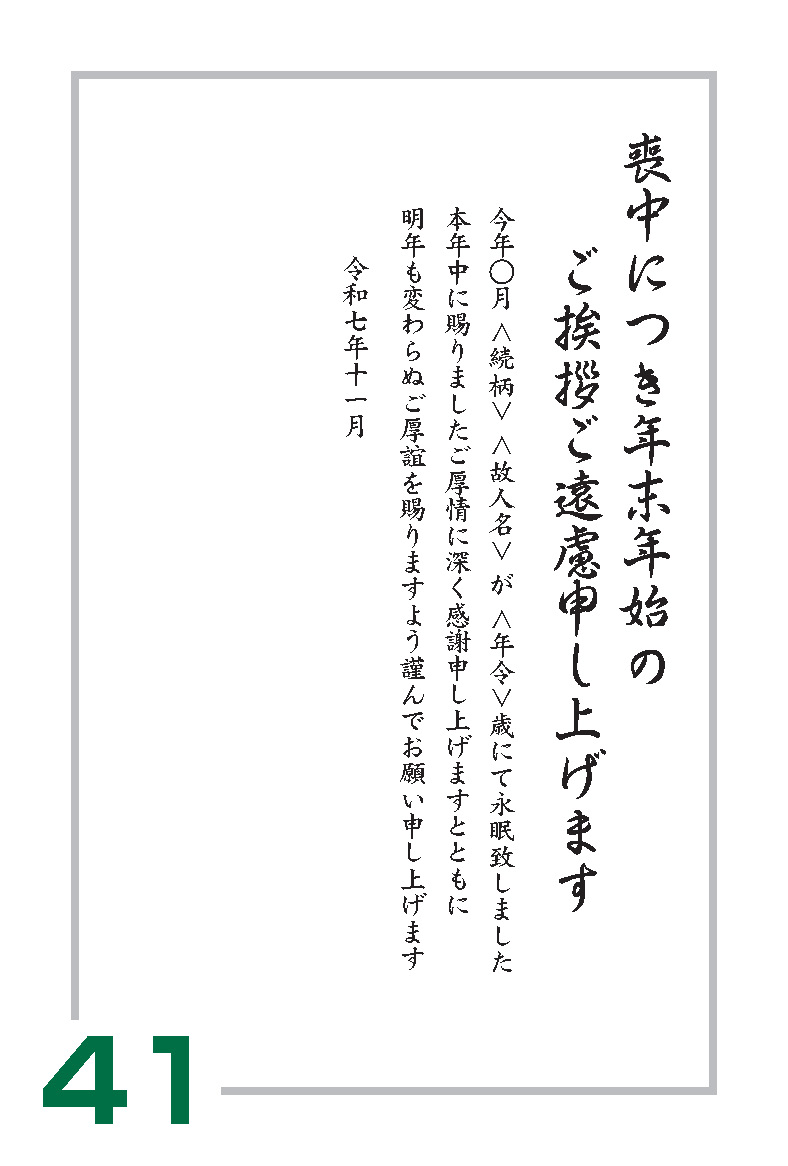 喪中につき年末年始の
ご挨拶ご遠慮申し上げます
今年〇月＜続柄＞＜故人名＞が＜年令＞歳にて永眠致しました
本年中に賜りましたご厚情に深く感謝申し上げますとともに
明年も変わらぬご厚誼を賜りますよう謹んでお願い申し上げます
令和七年十一月
41